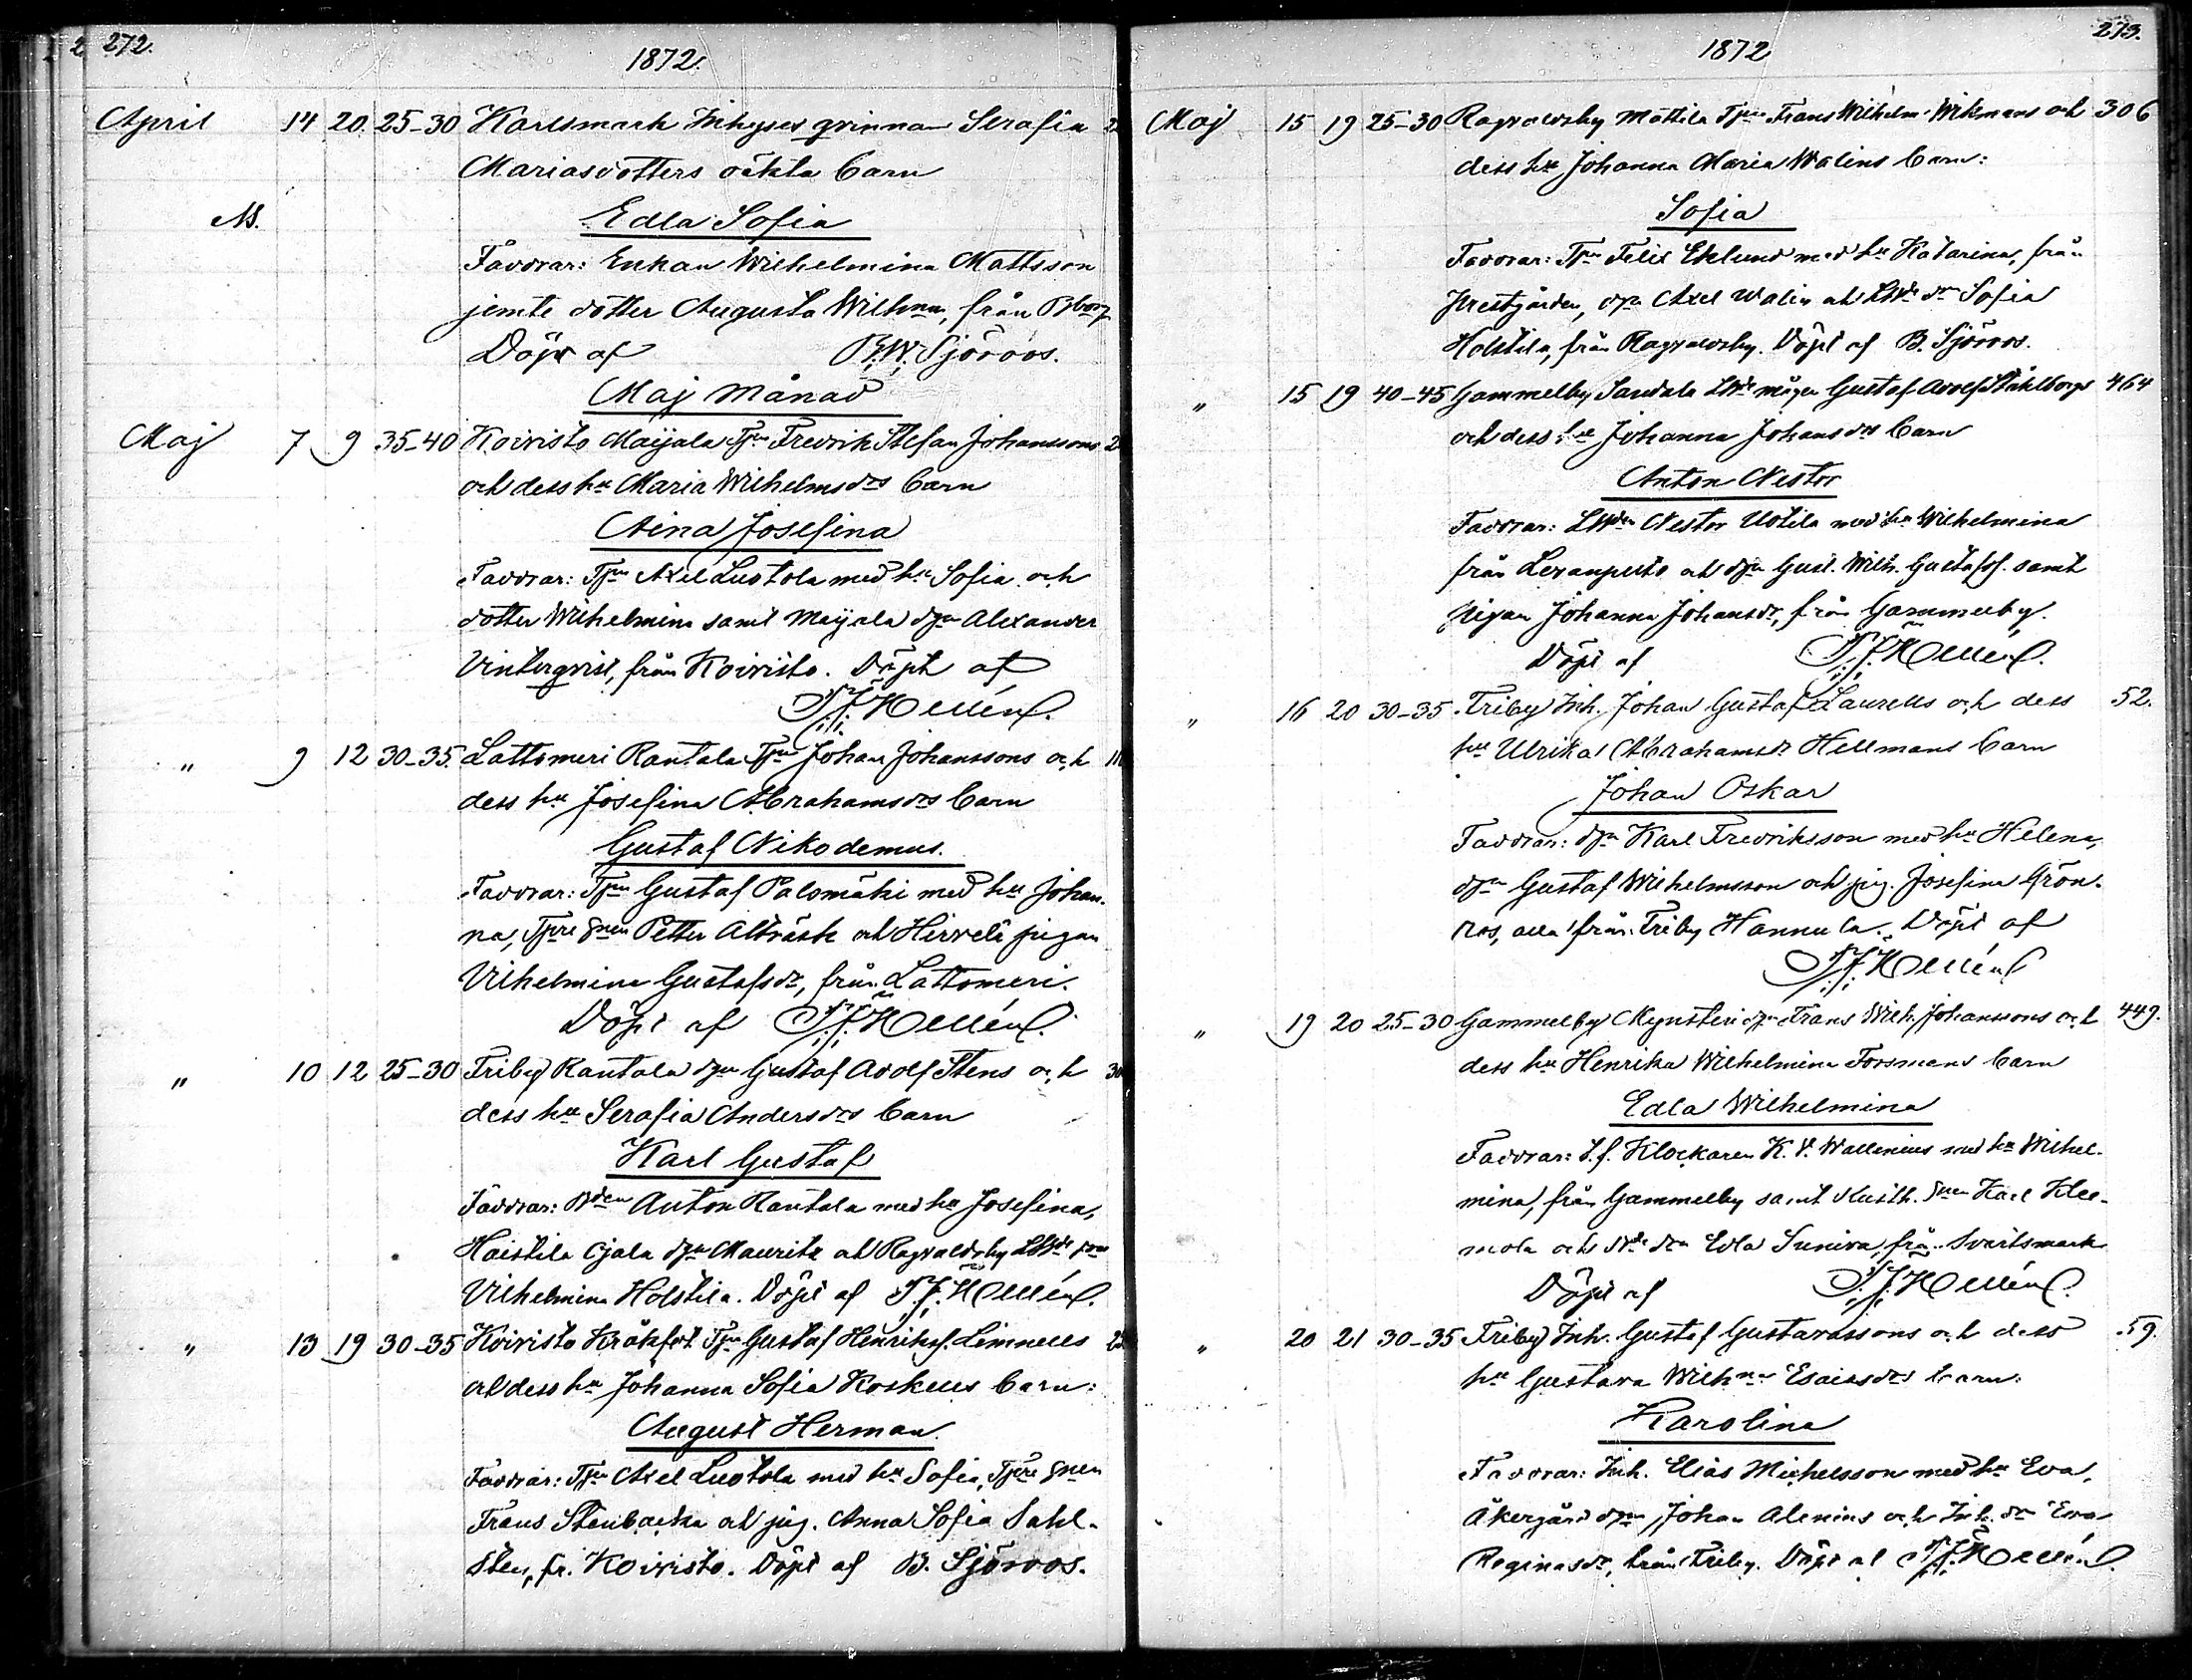 272.
1872.
April 14 20. 25-30 Karlsmark Inhyses qvinnan Serafia
Mariasdotters oäkta barn
NB.
Edla Sofia
Faddrar: Enkan Wilhelmina Mattsson
jemte dotter Augusta Wilhna, från Bborg
Döpt af B.W. Sjöroos.
Maj Månad
Maj 7 9 35-40 Koivisto Maijala Tpn Fredrik Stefan Johanssons
och dess hu Maria Wilhelmsdrs barn
Aina Josefina
Faddrar: Tpn Axel Luotola med hu Sofia och
dotter Wilhelmina samt Maijala dgn Alexander
Vinterqvist, från Koivisto. Döpt af
T.J. Hellén.
" 9 12 30-35. Lattomeri Rantala Tpn Johan Johanssons och
dess hu Josefina Abrahamsdrs barn
Gustaf Nikodemus.
Faddrar: Tpn Gustaf Palomäki med hu Johan-
na, Tpre snen Petter Alträsk och Hirvelä pigan
Vilhelmina Gustafsdr, från Lattomeri.
Döpt af T.J. Hellén.
" 10 12 25-30 Friby Rantala dgn Gustaf Adolf Stens och
dess hu Serafia Andersdrs barn
Karl Gustaf
Faddrar: Bden Anton Rantala med hu Josefina,
Haistila Ojala dgn Mauritz och Ragvaldsby LBde drn
Vilhelmina Holstila. Döpt af T.J. Hellén.
" 13 19 30-35 Koivisto Kråkfot Tpn Gustaf Henriksf. Limnells
och dess hu Johanna Sofia Koskens barn:
August Herman.
Faddrar: Tpn Axel Luotola med hu Sofia, Tpre snen
Frans Stenbacka och pig. Anna Sofia Sahl-
sten, fr. Koivisto. Döpt af B. Sjöroos.
273.
1872
Maj 15 19 25-30 Ragvaldsby Mattila Tpn Frans Wilhelm Wikmans och 306
dess hu Johanna Maria Walins barn:
Sofia
Faddrar: Tpn Felix Eklund med hu Katarina, från
Prestgården, dgn Axel Walin och LBde drn Sofia
Holstila, från Ragvaldsby. Döpt af B. Sjöroos.
" 15 19 40-45 Gammelby Sandala LBde mågen Gustaf Adolf Ståhlbergs 464
och dess hu Johanna Johansdrs barn
Anton Nestor
Faddrar: LBden Nestor Uotila med hu Wilhelmina
från Levanpelto och dgn Gust. Wilh. Gustafsf. samt
pigan Johanna Johansdr, från Gammelby.
Döpt af T.J. Hellén.
" 16 20 30-35 Friby Inh. Johan Gustaf Laurells och dess 52.
hu Ulrika Abrahamsdr Hellmans barn
Johan Oskar
Faddrar: dgn Karl Fredriksson med hu Helena,
dgn Gustaf Wilhelmsson och pig. Josefina Grön-
ros, alla från Friby Hannula. Döpt af
T.J. Hellén.
" 19 20 25-30 Gammelby Mynsteri dgn Frans Wilh. Johanssons och 449.
dess hu Henrika Wilhelmina Forsmans barn
Edla Wilhelmina
Faddrar: T.f. Klockaren K. V. Wallenius med hu Wilhel-
mina, från Gammelby samt Rusth. snen Karl Klee-
mola och drn Edla Suniva, från Svartsmark
Döpt af T.J. Hellén.
" 20 21 30-35 Friby Inh. Gustaf Gustavssons och dess 59.
hu Gustava Wilhna Esaiasdrs barn:
Karolina
Faddrar: Inh. Elias Michelsson med hu Eva,
Åkergård dgn Johan Alenius och Inh. dr Eva
Reginasdr, från Friby. Döpt af T.J. Hellén.